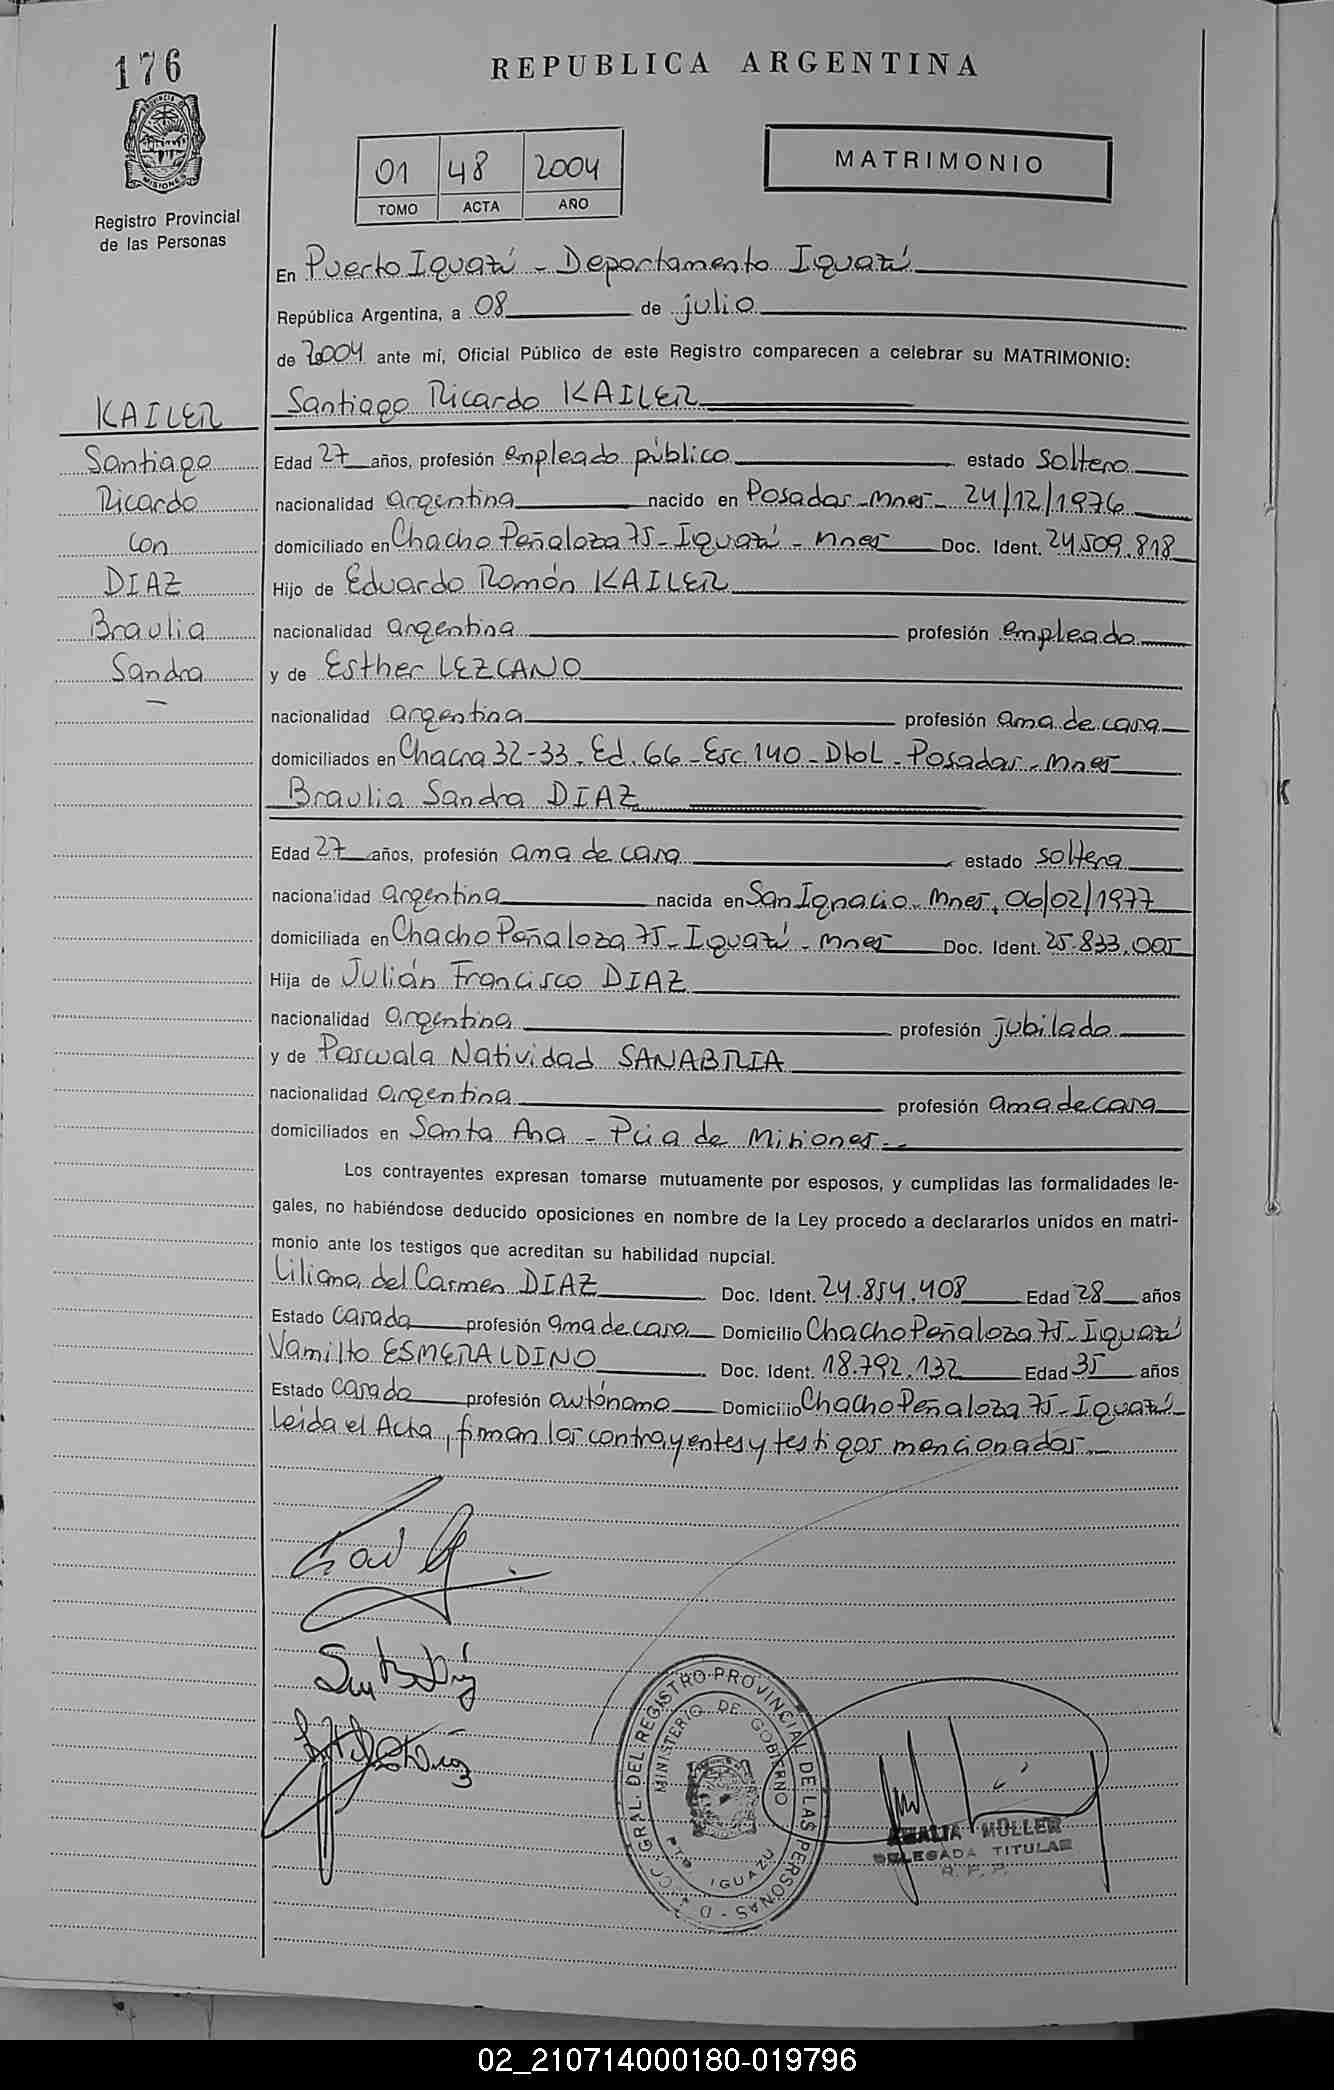 176
REPUBLICA ARGENTINA
PROVINCIA DE
MISIONES
Registro Provincial
de las Personas
01 48 2004
TOMO ACTA AÑO
MATRIMONIO
En Puerto Iguazú - Departamento Iguazú
República Argentina, a 08 de julio
de 2004 ante mí, Oficial Público de este Registro comparecen a celebrar su MATRIMONIO:
KAILER
Santiago
Ricardo
con
DIAZ
Braulia
Sandra
Santiago Ricardo KAILER
Edad 27 años, profesión empleado público estado soltero
nacionalidad argentina nacido en Posadas - Mnes - 24/12/1976
domiciliado en Chacho Peñaloza 75 - Iguazú - Mnes Doc. Ident. 24.509.818
Hijo de Eduardo Ramón KAILER
nacionalidad argentina profesión empleado
y de Esther LEZCANO
nacionalidad argentina profesión ama de casa
domiciliados en Chacra 32-33. Ed. 66 - Esc. 140 - Dto L - Posadas - Mnes
Braulia Sandra DIAZ
Edad 27 años, profesión ama de casa estado soltera
nacionalidad argentina nacida en San Ignacio - Mnes, 06/02/1977
domiciliada en Chacho Peñaloza 75 - Iguazú - Mnes Doc. Ident. 25.833.005
Hija de Julián Francisco DIAZ
nacionalidad argentina profesión jubilado
y de Pascuala Natividad SANABRIA
nacionalidad argentina profesión ama de casa
domiciliados en Santa Ana - Pcia de Misiones -
Los contrayentes expresan tomarse mutuamente por esposos, y cumplidas las formalidades le-
gales, no habiéndose deducido oposiciones en nombre de la Ley procedo a declararlos unidos en matri-
monio ante los testigos que acreditan su habilidad nupcial.
Liliana del Carmen DIAZ Doc. Ident. 24.854.408 Edad 28 años
Estado casada profesión ama de casa Domicilio Chacho Peñaloza 75 - Iguazú
Vamilto ESMERALDINO Doc. Ident. 18.792.132 Edad 35 años
Estado casado profesión autónomo Domicilio Chacho Peñaloza 75 - Iguazú
Leida el Acta, firman los contrayentes y testigos mencionados
GRAL. DEL REGISTRO PROVINCIAL DE LAS PERSONAS
MINISTERIO DE GOBIERNO
PTO IGUAZU
AMALIA MÜLLER
DELEGADA TITULAR
R. P. P.
02_210714000180-019796